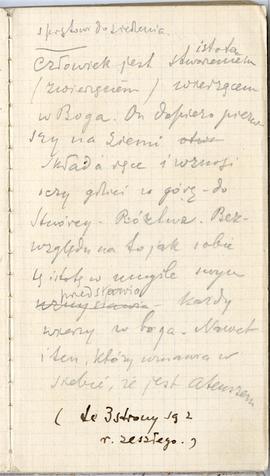 istota
Człowiek jest stworzeniem
(zwierzęciem) wierzącem
w Boga. On dopiero pierw
szy na ziemi
składa ręce i wznosi
oczy gdzieś w górę - do
Stwórcy - Bóztwa. Bez-
względu na to jak sobie
tę istotę w umyśle swym
przedstawia
wyobraża - każdy
wierzy w boga. Nawet
i ten, który wmawia w
siebie, że jest ateuszem
(te 3 strony są z
r. zeszłego.)